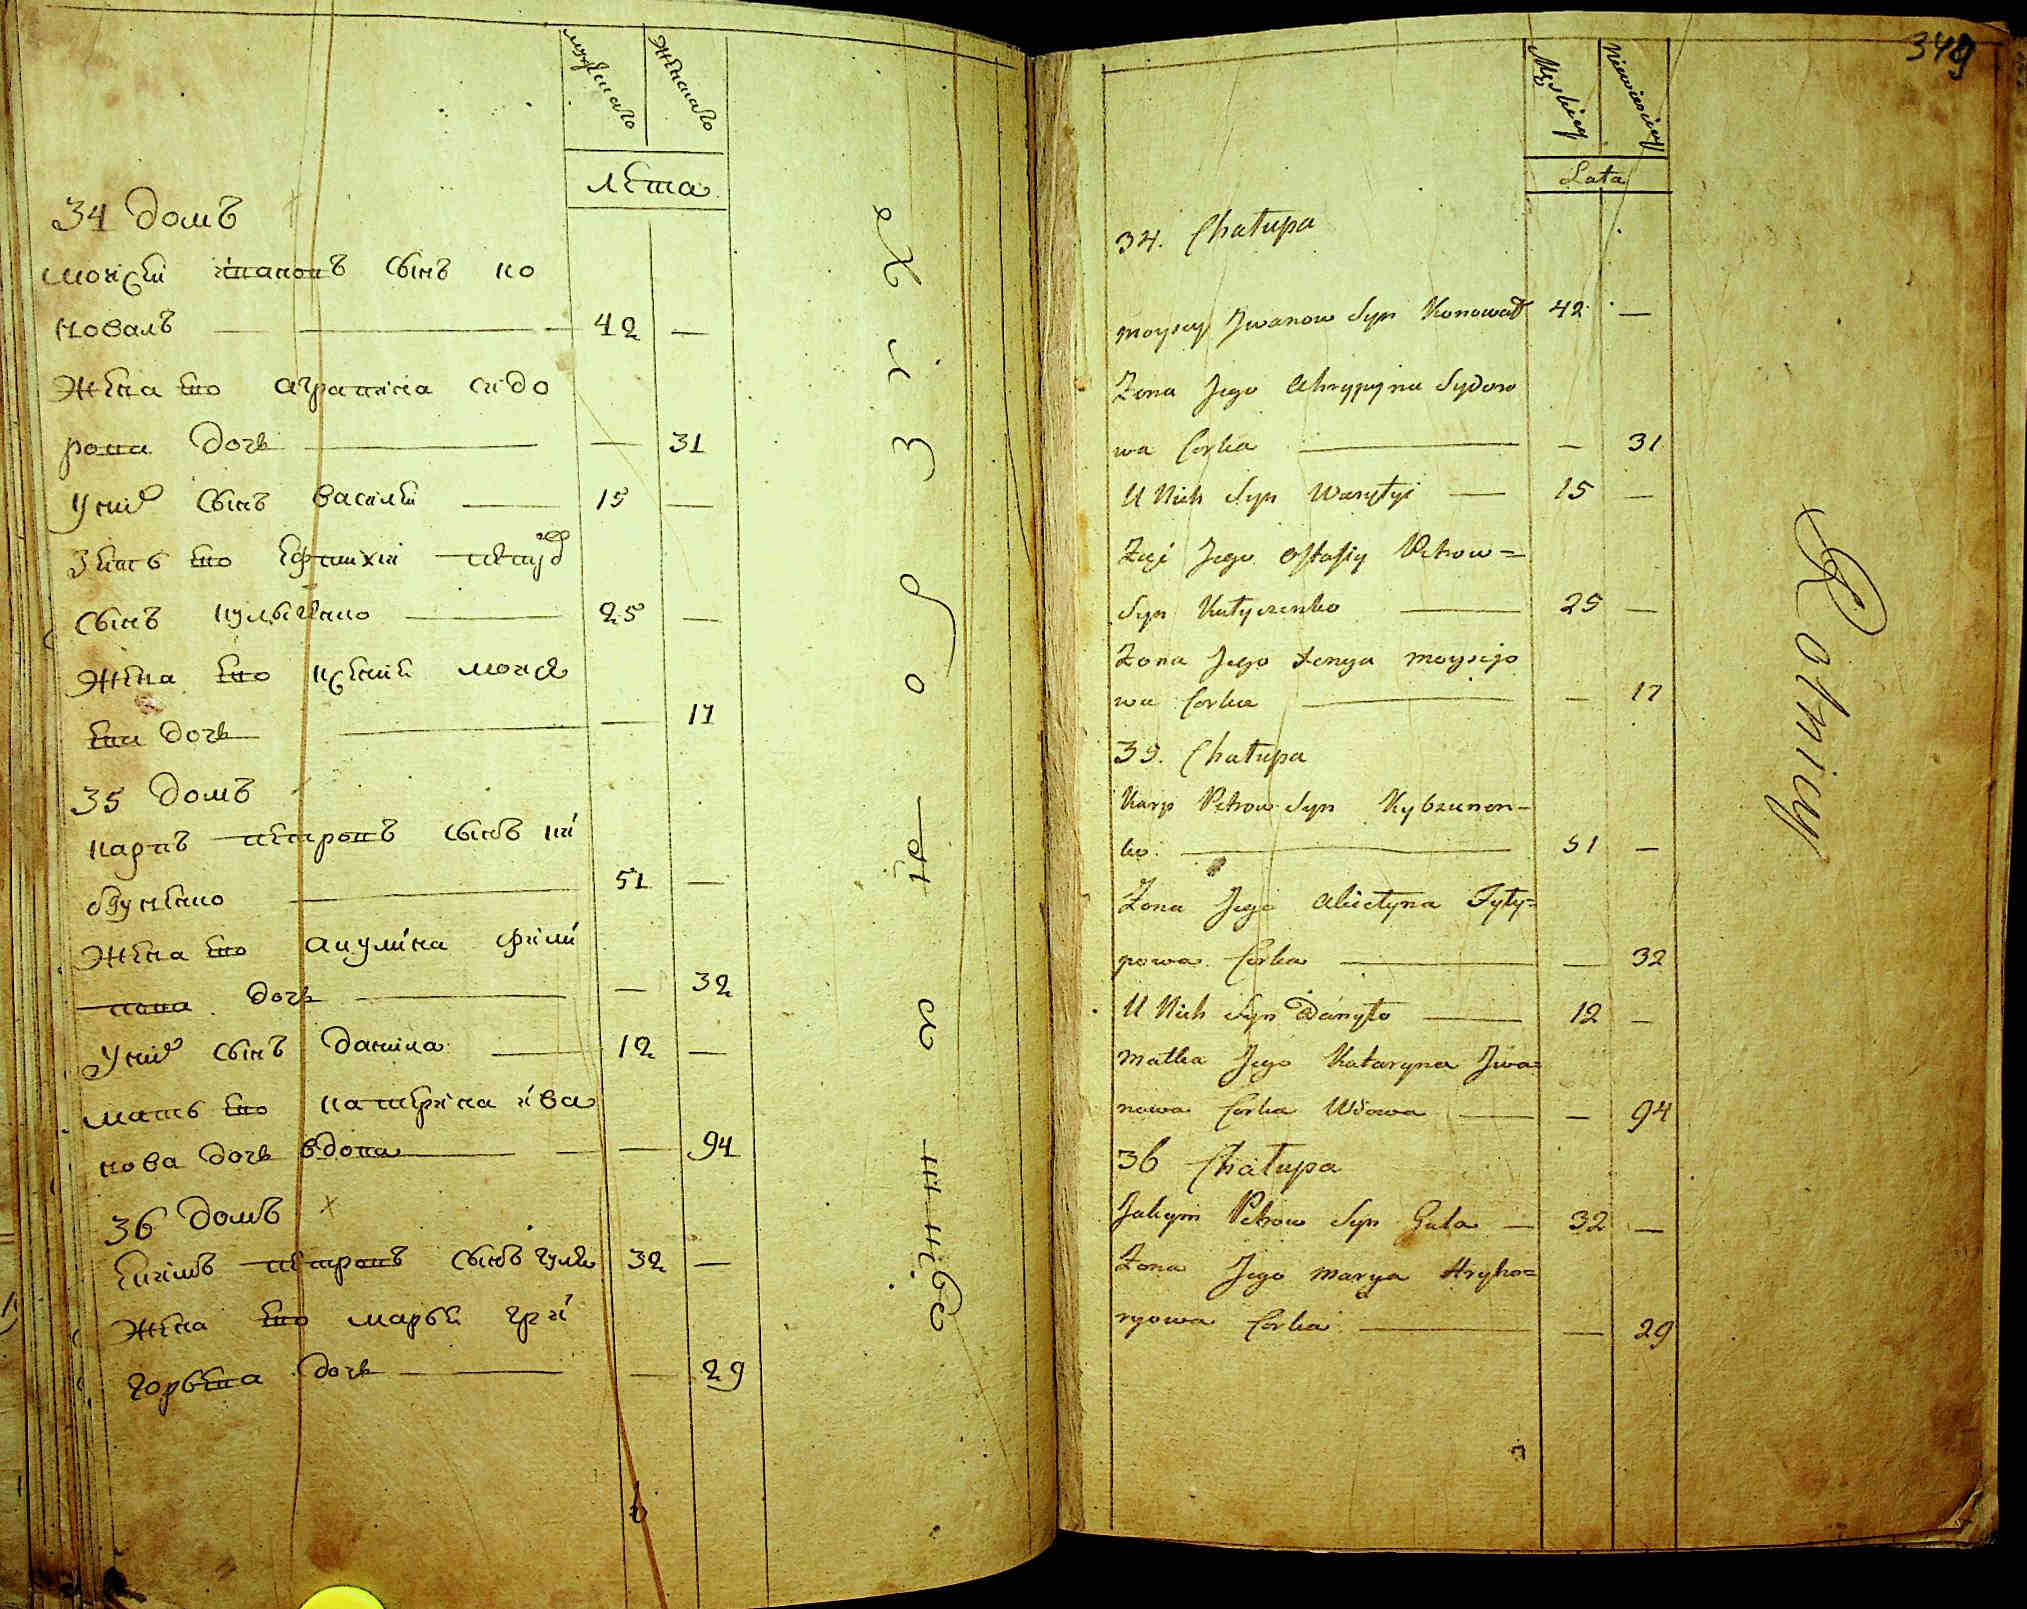 мужеска
женска
лѣта
34 домъ
моисей івановъ сынъ ко
новалъ — 42 —
жена его аграпина сидо
рова дочь — — 31
У них сынъ василей — 15 —
зять его петров
сынъ кулыченко — 25 —
жена его ксения моисе
ева дочь — — 17
35 домъ
карпъ петровъ сынъ ки
бзуненко 51 —
жена его акулина фили
пова дочь — — 32
У них сынъ данила — 12 —
мать его катерина ива
нова дочь вдова — — 94
36 домъ
екимъ петровъ сынъ гула 32 —
жена его марья гри
горьева дочь — — 29
349
Męskiey
Niewiesciey
Lata
34. Chałupa
Moysey Jwanow Syn Konował 42 —
Żona Jego Ahrypyna Sydoro
wa Corka — — 31
U Nich Syn Wasylyi — 15 —
Zięć Jego Ostafiy Petrow=
Syn Kułyczenko — 25 —
Żona Jego Xenya Moysejo
wa Corka — — 17
35. Chałupa
Karp Petrow Syn Kybzunen-
ko. — 51 —
Żona Jego Fyły=
powa Corka — — 32
U Nich Syn Danyło — 12 —
Matka Jego Kataryna Jwa=
nowa Corka Wdowa — — 94
36 Chałupa
Jakym Petrow Syn Guła — 32 —
Żona Jego Marya Hryho=
ryowa Corka — — 29
Rolnicy